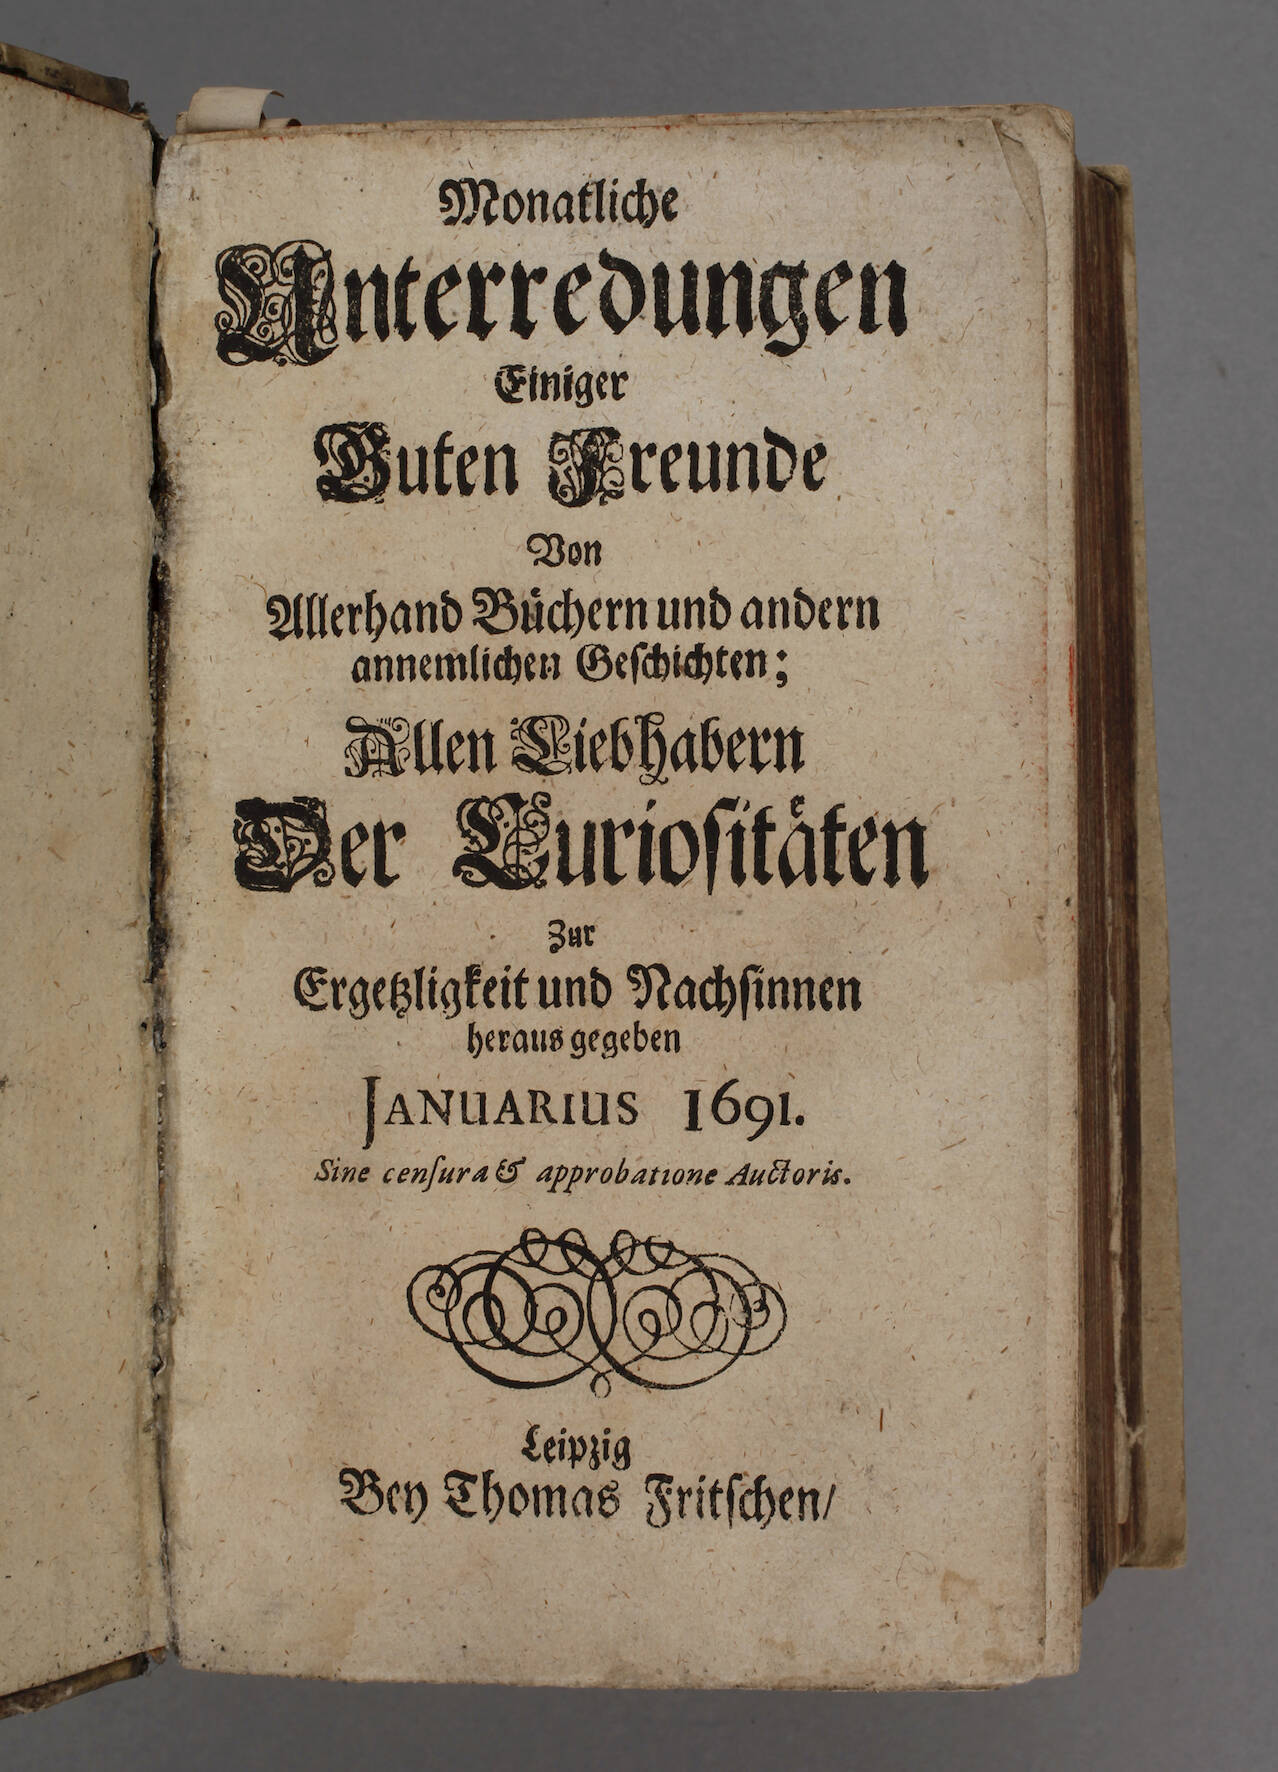 Monatliche
Unterredungen
Einiger
Guten Freunde
Von
Allerhand Büchern und andern
annemlichen Geſchichten;
Allen Liebhabern
Der Curioſitaͤten
Zur
Ergetzligkeit und Nachſinnen
heraus gegeben
JANUARIUS 1691.
Sine cenſura & approbatione Auctoris.
Leipzig
Bey Thomas Fritſchen/